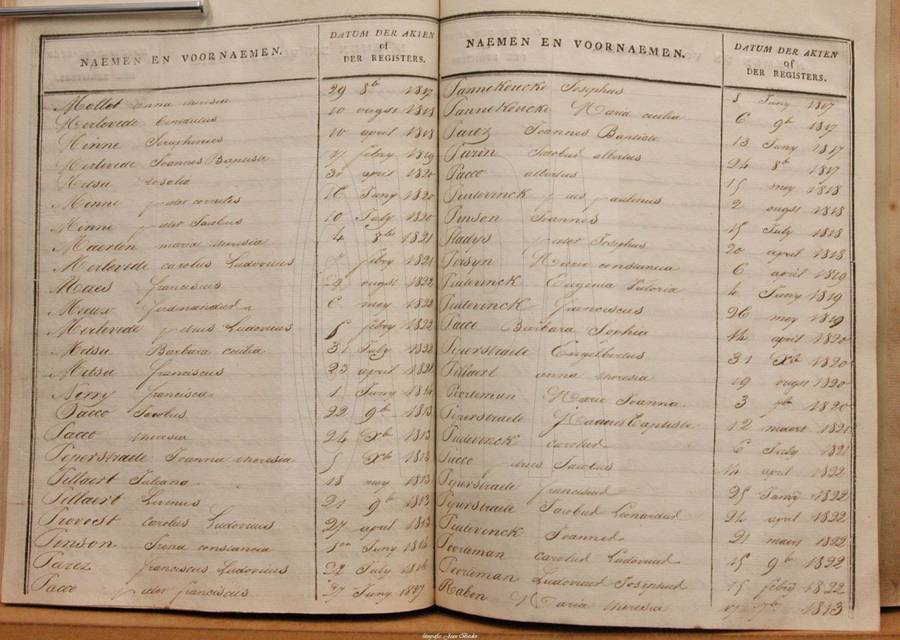 NAEMEN EN VOORNAEMEN.
DATUM DER AKTEN
of
DER REGISTERS.
Mollet anna theresia 29 8b 1817
Merlevede 10 ougst 1818
Minne Seraphinus 10 april 1818
Merlevede Joannes Baptista febry 1819
Mitsu Rosalia 30 april 1820
Minne 16 Juny 1820
Minne Jacobus 10 July 1820
Maerten maria theresia 4 1821
Merlevede carolus Ludovicus febry 1821
Maes franciscus ougst 1822
Ferdinandus 6 mey 1822
Merlevede petrus Ludovicus febry 1822
Mitsu Barbara cecilia 31 July 1822
Mitsu franciscus 23 april 1821
Nerry francisca 1 Juny
Pacco Jacobus 22 9b 1813
Pacco theresia 24 Xb 1813
Peperstraete Joanna theresia Xb 1813
Pillaert Juliana 18 mey 1813
Pillaert Livinus 21 9b 1813
Provost carolus Ludovicus 27 april 1813
Pinson constancia Juny 1816
Parez franciscus Ludovicus 22 July 1816
Pacco franciscus 27 Juny 1817
NAEMEN EN VOORNAEMEN.
DATUM DER AKTEN
of
DER REGISTERS.
Pannekoucke Josephus Juny 1817
Pannekoucke Maria cecilia 6 9b 1817
Parez Joannes Baptiste 13 Juny 1817
Jacobus albertus 24 8b 1817
Pacco albertus 15 mey 1818
Puterinck 2 ougst 1818
Pinson Joannes 15 July 1818
Pladys Josephus 20 april 1818
Persyn Maria constancia 6 april 1819
Puterinck Eugenia 4 Juny 1819
Puterinck franciscus 26 mey 1819
Pacco Barbara Sophia 14 april 1820
Peperstraete Engelbertus 31 Xb 1820
Pillaert anna theresia 19 ougst 1820
Poorteman Maria Joanna 3 1820
Peperstraete Baptiste 12 maers 1821
Puterinck carolus 6 July 1821
Pacco Jacobus 14 april 1822
Peperstraete franciscus 25 Juny 1822
Peperstraete Jacobus Leonardus 24 april 1822
Puterinck Joannes 21 maers 1822
Poorteman carolus Ludovicus 15 9b 1822
Poorteman Ludovicus Josephus 15 febry 1822
Raben Maria theresia 1813